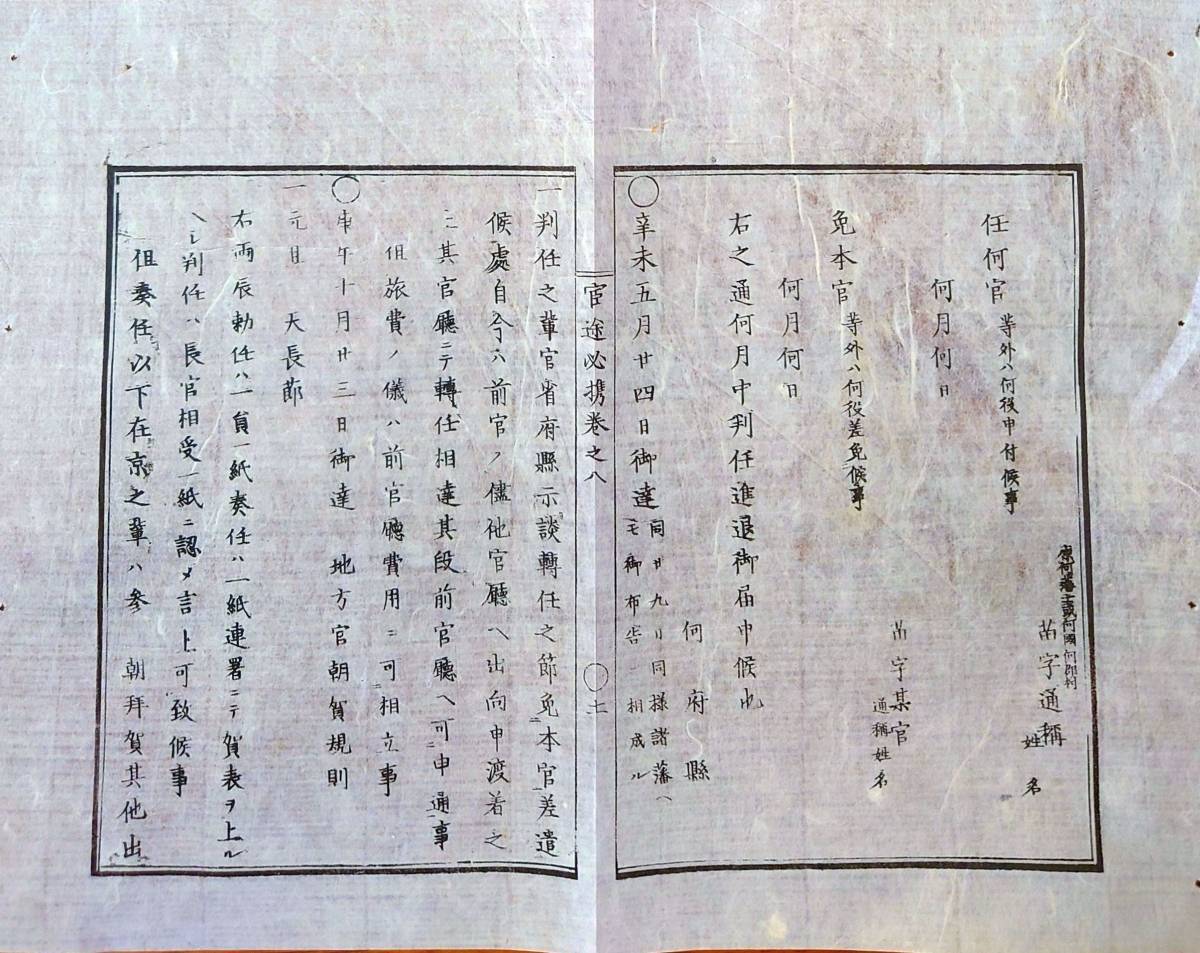 任何官 等外ハ何役申付候事
原何藩士或何國何郡村
苗字通稱
姓名
何月何日
免本官 等外ハ何役差免候事
苗字某官
通稱姓名
何月何日
右之通何月中判任進退御届申候也
何府縣
○辛未五月廿四日御達 同廿九日同様諸藩ヘ
モ御布告ニ相成ル
宦途必携卷之八
○十
一判任之輩官省府縣示談轉任之節免本官差遣
候處自今ハ前官ノ儘他官廳ヘ出向申渡着之上
其官廳ニテ轉任相達其段前官廳ヘ可申通事
但旅費ノ儀ハ前官廳費用ニ可相立事
○庚午十月廿三日御達 地方官朝賀規則
一元日 天長節
右兩辰勅任ハ一員一紙奏任ハ一紙連署ニテ賀表ヲ上ル
ヘシ判任ハ長官相受一紙ニ認メ言上可致候事
但奏任以下在京之輩ハ参 朝拜賀其他出